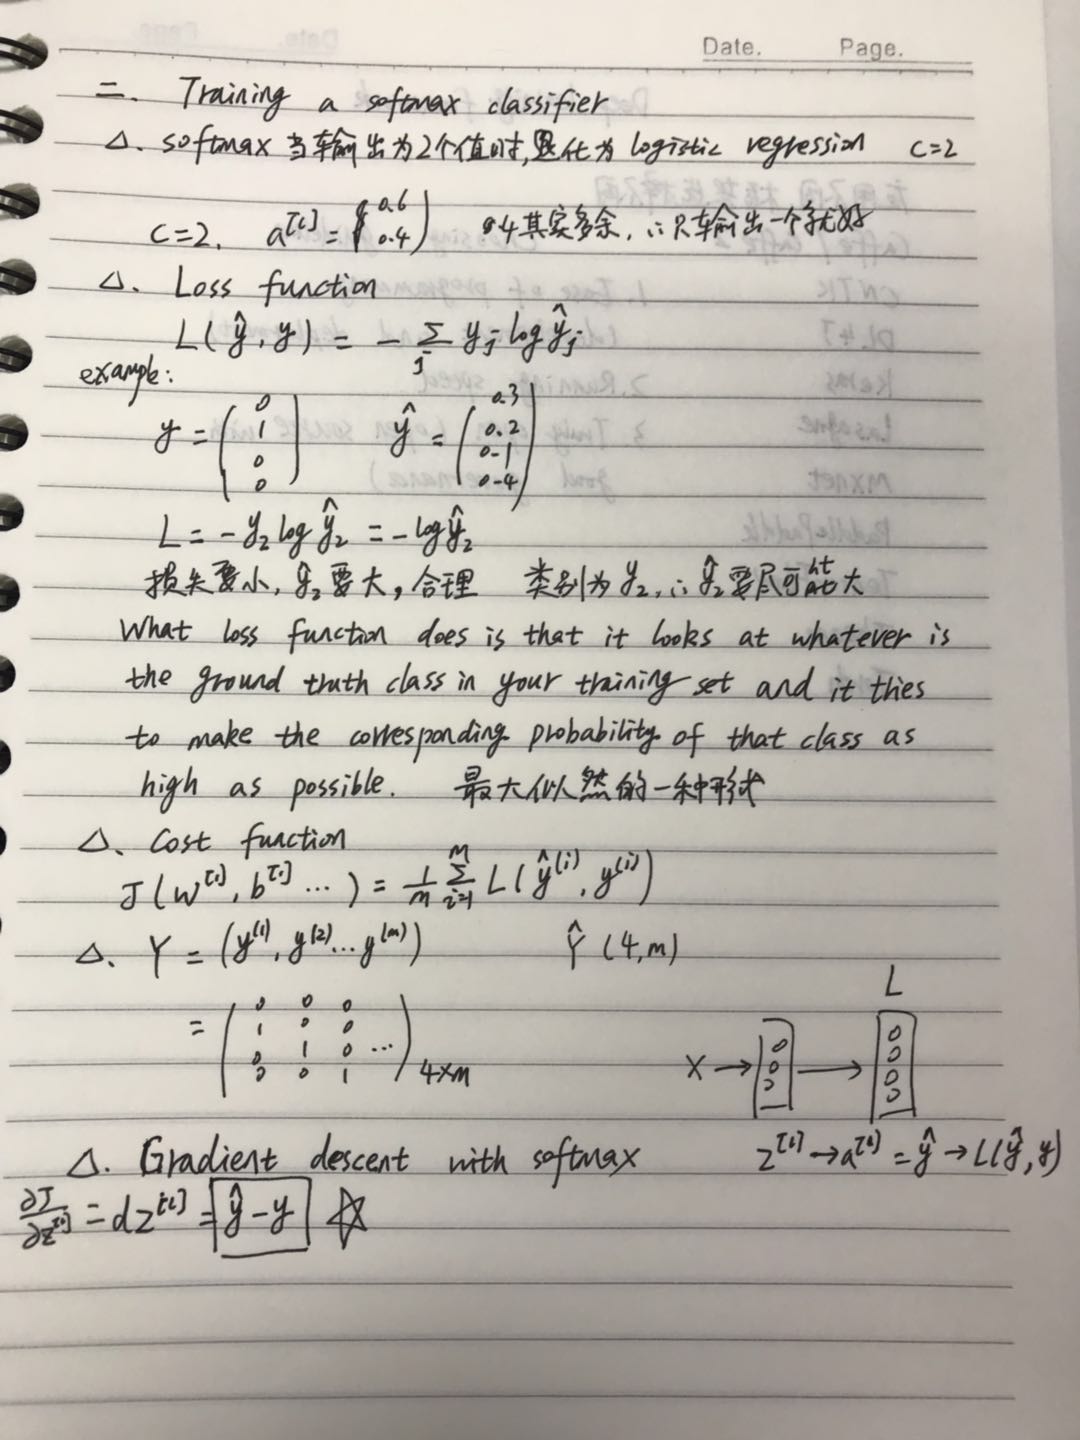 Date. Page.
二. Training a softmax classifier
△. softmax 当输出为2个值时,退化为 logistic regression C=2
C=2, a^[L] = (0.6 0.4) 0.4其实多余, ∴只输出一个就好
△. Loss function
L(ŷ, y) = - Σ_j y_j log ŷ_j
example:
y = (0 1 0 0) ŷ = (0.3 0.2 0.1 0.4)
L = -y₂ log ŷ₂ = -log ŷ₂
损失要小, ŷ₂要大, 合理 类别为 y₂, ∴ ŷ₂要尽可能大
What loss function does is that it looks at whatever is
the ground truth class in your training set and it tries
to make the corresponding probability of that class as
high as possible. 最大似然的一种形式
△. Cost function
J(w^[1], b^[1] ...) = 1/m Σ_{i=1}^m L(ŷ^(i), y^(i))
△. Y = (y^(1), y^(2)... y^(m)) Ŷ (4,m)
= (0 0 0
1 0 0
0 1 0 ...
0 0 1)_{4×m}
L
X → 0 0 0 → 0 0 0 0
△. Gradient descent with softmax z^[L] → a^[L] = ŷ → L(ŷ, y)
∂J/∂z^[L] = dz^[L] = ŷ - y ☆